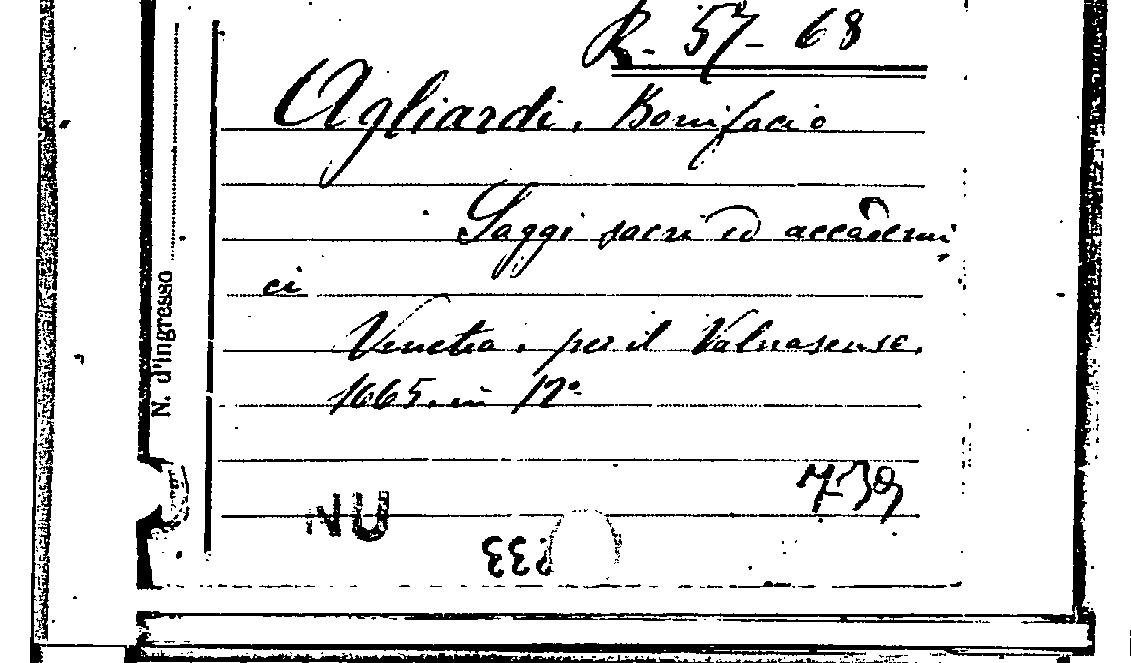 R- 57- 68
Agliardi, Bonifacio
Saggi sacri ed accademi-
ci
Venetia, per il Valvasense,
1665. in 12º
N. d'ingresso
NU